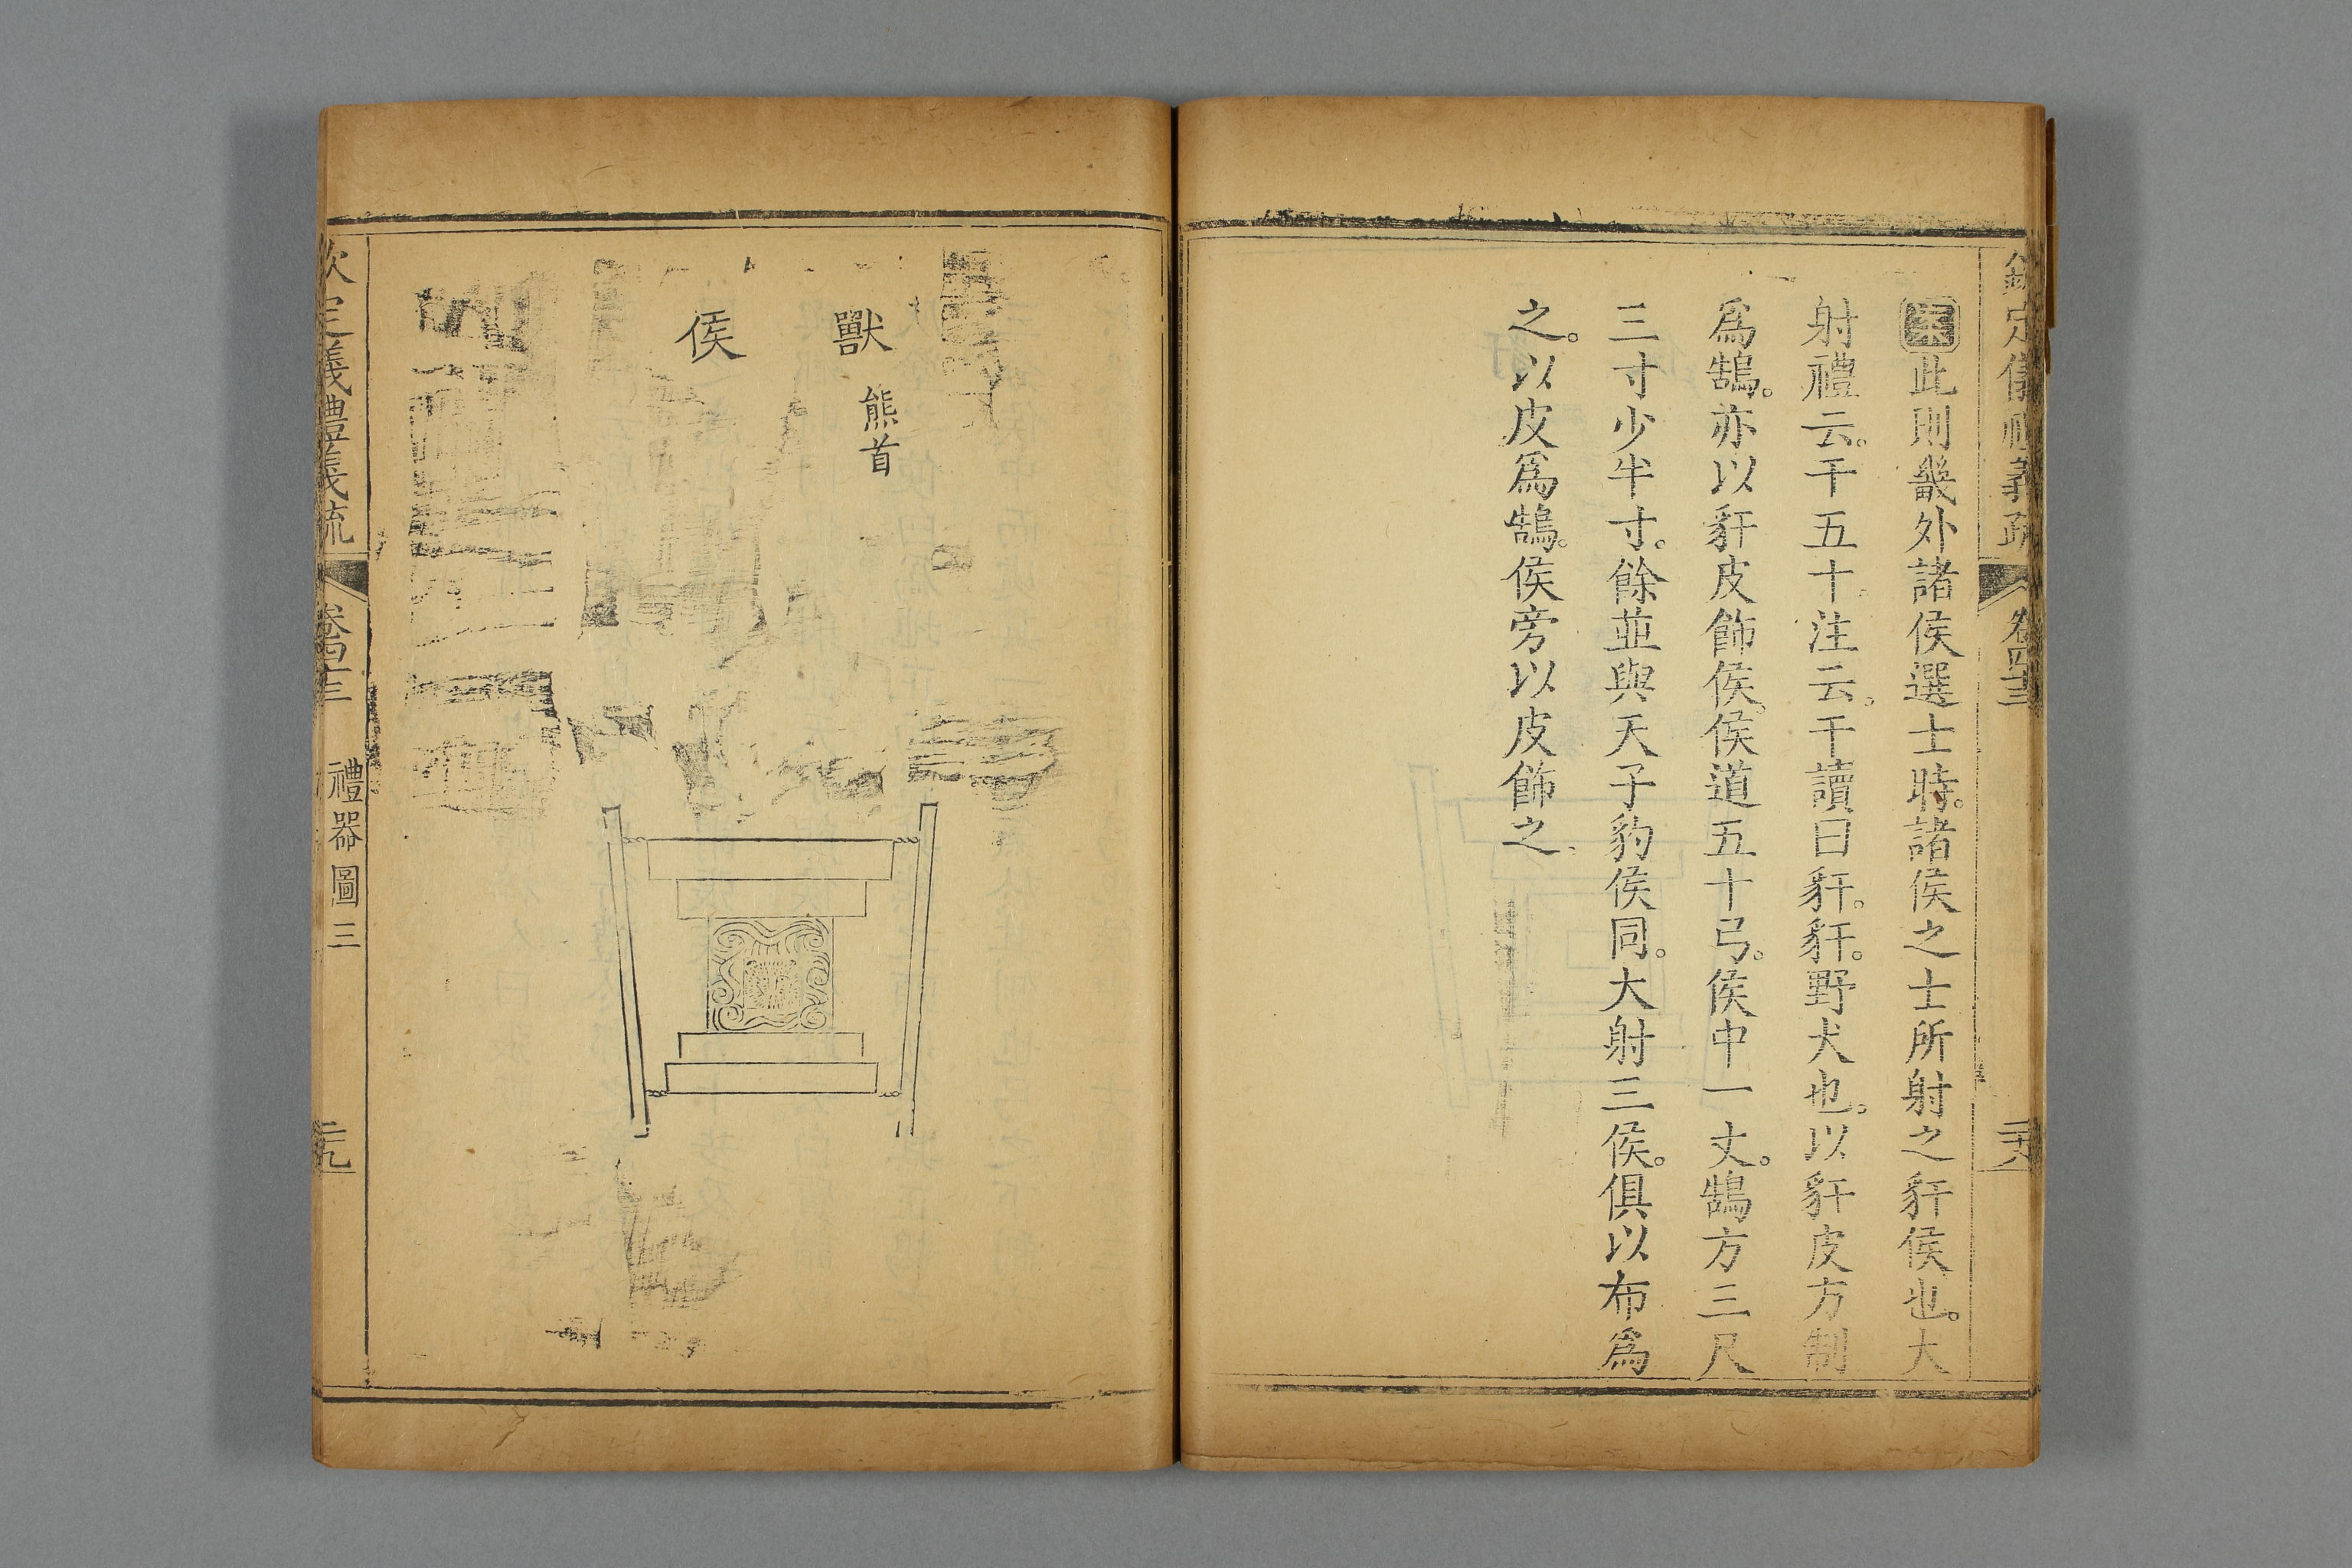 欽定儀禮義疏 卷四十三 二十八
案此則畿外諸侯選士時。諸侯之士所射之豻侯也。大
射禮云。干五十。注云。干讀曰豻。豻。野犬也。以豻皮方制
爲鵠。亦以豻皮飾侯。侯道五十弓。侯中一丈。鵠方三尺
三寸少半寸。餘並與天子豹侯同。大射三侯。俱以布爲
之。以皮爲鵠。侯旁以皮飾之。
獸 熊首
侯
欽定儀禮義疏 卷四十三 禮器圖三 二十九